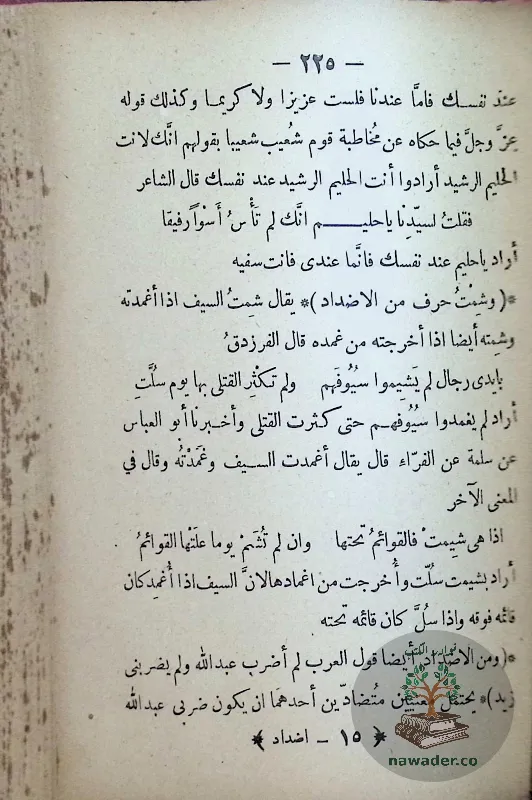 — ٢٢٥ —
عند نفسك فامّا عندنا فلست عزيزا ولا كريما وكذلك قوله
عزّ وجلّ فيما حكاه عن مُخاطبة قوم شُعيب شعيبا بقولهم انَّك لانت
الحليم الرشيد أرادوا أنت الحليم الرشيد عند نفسك قال الشاعر
فقلتُ لسيّدِنا ياحليـــم انّك لم تَأْسُ أَسْوًا رفيقا
أراد ياحليم عند نفسك فانّما عندى فانت سفيه
*( وشِمْتُ حرف من الاضداد )* يقال شمِتُ السيف اذا أغمدته
وشمته أيضا اذا أخرجته من غمده قال الفرزدقُ
بايدى رجال لم يَشيموا سيُوفَهم ولم تكثِر القتلى بها يوم سُلَّتِ
أراد لم يغمدوا سيُوفهم حتى كثرت القتلى وأخبرنا أبو العباس
عن سلمة عن الفرّاءِ قال يقال أغمدت السيف وغَمَدْتُه وقال في
المعنى الآخر
اذا هى شيمتْ فالقوائمُ تحتها وان لم تُشَمْ يوما علَتْها القوائمُ
أراد بشيمت سُلّت وأُخرجت من اغمادها لانَّ السيف اذا أُغمِد كان
قائمه فوقه واذا سُلَّ كان قائمه تحته
*( ومن الاضداد أيضا قول العرب لم أضرب عبدالله ولم يضربنى
زيد )* يحتمل معنيَين مُتضادّين أحدهما ان يكون ضربى عبدالله
﴿ ١٥ - اضداد ﴾
نوادر الكتب
nawader.co